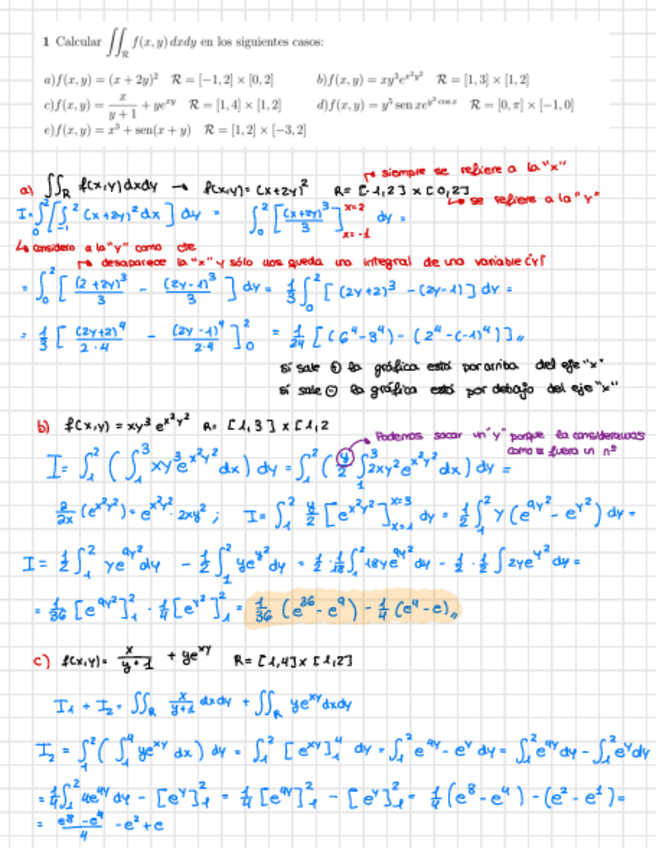 1 Calcular ∬_R f(x, y) dxdy en los siguientes casos:
a) f(x, y) = (x + 2y)² R = [−1, 2] × [0, 2] b) f(x, y) = xy³e^{x²y²} R = [1, 3] × [1, 2]
c) f(x, y) = x/(y + 1) + ye^{xy} R = [1, 4] × [1, 2] d) f(x, y) = y⁵ sen xe^{y³ cos x} R = [0, π] × [−1, 0]
e) f(x, y) = x³ + sen(x + y) R = [1, 2] × [−3, 2]
siempre se refiere a la "x"
a) ∬_R f(x,y) dxdy → f(x,y) = (x+2y)² R = [-1,2] x [0,2]
se refiere a la "y"
I = ∫₀² [∫₋₁² (x+2y)² dx] dy = ∫₀² [(x+2y)³/3]_{x=-1}^{x=2} dy =
considero a la "y" como cte
desaparece la "x" y sólo nos queda una integral de una variable (y)
= ∫₀² [(2+2y)³/3 − (2y-1)³/3] dy = 1/3 ∫₀² [(2y+2)³ − (2y-1)] dy =
= 1/3 [(2y+2)⁴/2·4 − (2y-1)⁴/2·4]₀² = 1/24 [(6⁴-3⁴) - (2⁴-(-1)⁴)]
si sale ⊕ la gráfica está por arriba del eje "x"
si sale ⊖ la gráfica está por debajo del eje "x"
b) f(x,y) = xy³ e^{x²y²} R = [1,3] x [1,2
Podemos sacar un "y" porque la consideramos
como si fuera un nº
I = ∫₁² (∫₁³ xy³e^{x²y²} dx) dy = ∫₁² (y/2 ∫₁³ 2xy²e^{x²y²} dx) dy =
∂/∂x (e^{x²y²}) = e^{x²y²} · 2xy² ; I = ∫₁² y/2 [e^{x²y²}]_{x=1}^{x=3} dy = 1/2 ∫₁² y (e^{9y²} − e^{y²}) dy =
I = 1/2 ∫₁² ye^{9y²} dy − 1/2 ∫₁² ye^{y²} dy = 1/2 · 1/18 ∫₁² 18ye^{9y²} dy − 1/2 · 1/2 ∫ 2ye^{y²} dy =
= 1/36 [e^{9y²}]₁² · 1/4 [e^{y²}]₁² = 1/36 (e³⁶ − e⁹) − 1/4 (e⁴ − e)
c) f(x,y) = x/(y+1) + ye^{xy} R = [1,4] x [1,2]
I₁ + I₂ = ∬_R x/(y+1) dxdy + ∬_R ye^{xy} dxdy
I₂ = ∫₁² (∫₁⁴ ye^{xy} dx) dy = ∫₁² [e^{xy}]₁⁴ dy = ∫₁² e^{4y} − e^y dy = ∫₁² e^{4y} dy − ∫₁² e^y dy
= 1/4 ∫₁² 4e^{4y} dy − [e^y]₁² = 1/4 [e^{4y}]₁² − [e^y]₁² = 1/4 (e⁸ − e⁴) − (e² − e¹) =
= (e⁸ − e⁴)/4 − e² + e